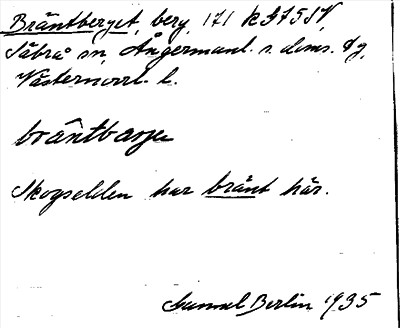 Bräntberget, berg, 171 kG75SV,
Säbrå sn, Ångermanl. s. doms. dg,
Västernorrl. l.
bräntbarje
Skogselden har bränt här.
Samuel Berlin 1935